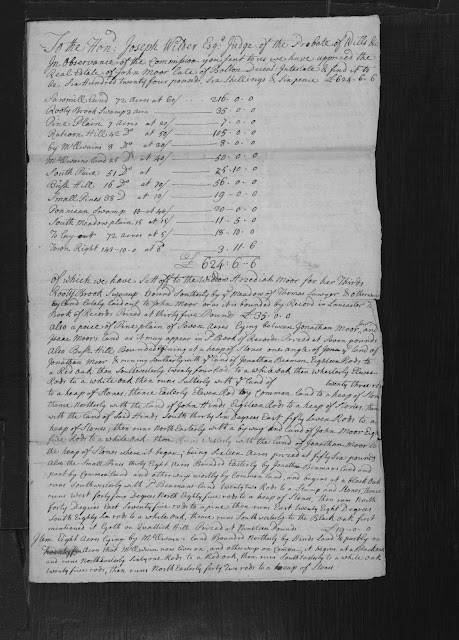 To the Hon.d Joseph Wilder Esq.r Judge of the Probate of Wills &c
In Observance of the Commision you sent to us we have aprized the
Real Estate of John Moor Late of Bolton Deceasd: Intestate & find it to
be Six Hundred twenty four pounds, Six Shillings & Six pence £624-6-6
Sawmill Land 72 acres at 60/ 216-0-0
Rooty Brook Swamp 35-0-0
Pine Plain 7 acres at 20/ 7-0-0
Ratoon Hill 42 Do at 50/ 105-0-0
by McElwains 8 Do at 20/ 8-0-0
McElwains Land 25 Do at 40/ 50-0-0
South Pine 51 Do at 25-10-0
Bush Hill 16 Do at 70/ 56-0-0
Small Pines 38 Do at 10/ 19-0-0
Ponnican Swamp 10 at 40/ 20-0-0
South meadow plain 15 at 15/ 11-5-0
To Lay out 72 acres at 5/ 18-10-0
Town Right 143-10-0 at 6d 3-11-6
£ 624-6-6
of which we have Sett off to the Widow Moor for her Thirds
Rooty Brook Swamp Bound Southerly by ye meadow of Thomas Sawyer & otherways
by Land Lately Laid out to John Moor as it is bounded by Record in Lancaster
Book of Records Prized at thirty five Pounds £ 35-0-0
also a piece of Pine plain of Seven Acres Lying between Jonathan Moor, and
Isaac Moors Land as it may appear in Sd Book of Records Prized at Seven pounds
also Bush Hill Bounded at a heap of Stones one angle of ye land of
Jonathan Moor & runing Southerly with ye Land of Jonathan Beamun Eighteen Rods to
a Red oak then Southwesterly twenty four Rods to a white oak then westerly Eleven
Rods to a white oak then runs Sutherly with ye Land of twenty three rods
to a heap of Stones, thence Easterly Eleven Rod by Common Land to a heap of Stones
thence Northerly with the Land of John Hinds Eighteen Rods to a heap of Stones, then
with the Land of Said Hinds South thirty Six Degrees East fifty Seven Rods to a
heap of Stones, then runs North Easterly with a by way and Land of John Moor Esqr
five Rods to a white oak then Runs westerly with the Land of Jonathan Moor to
the heap of Stones where it began, being Sixteen Acres prized at fifty Six pounds
also the Small Pines thirty Eight Acres Bounded Easterly by Jonathan Beamans Land and
part by Common Land and otherways mostly by Common Land, and begins at a Black Oak
runs Southwesterly with Sd Beaman Land twenty two Rods to a Stump and Stones, thence
runs West forty four Degrees North Eighty five rods to a heap of Stones, then run North
forty Degrees East Seventy five rods to a pine, then runs East twenty Eight Degrees
South Eighty Six rods to a white oak, thence runs Southwesterly to the Black oak first
mentioned it Lyeth on Hill Prized at Nineteen Pounds £ 19-0-0
Item Eight Acres Lying by McElwain's Land Bounded Northerly by Hinds Land & partly on
Acres that McElwain now lives on, and otherways on Common, it begins at a Black oak
and runs Northwesterly Rods to a Red oak, then runs Southwesterly to a white oak
twenty five rods, then runs North Easterly forty two rods to a heap of Stones